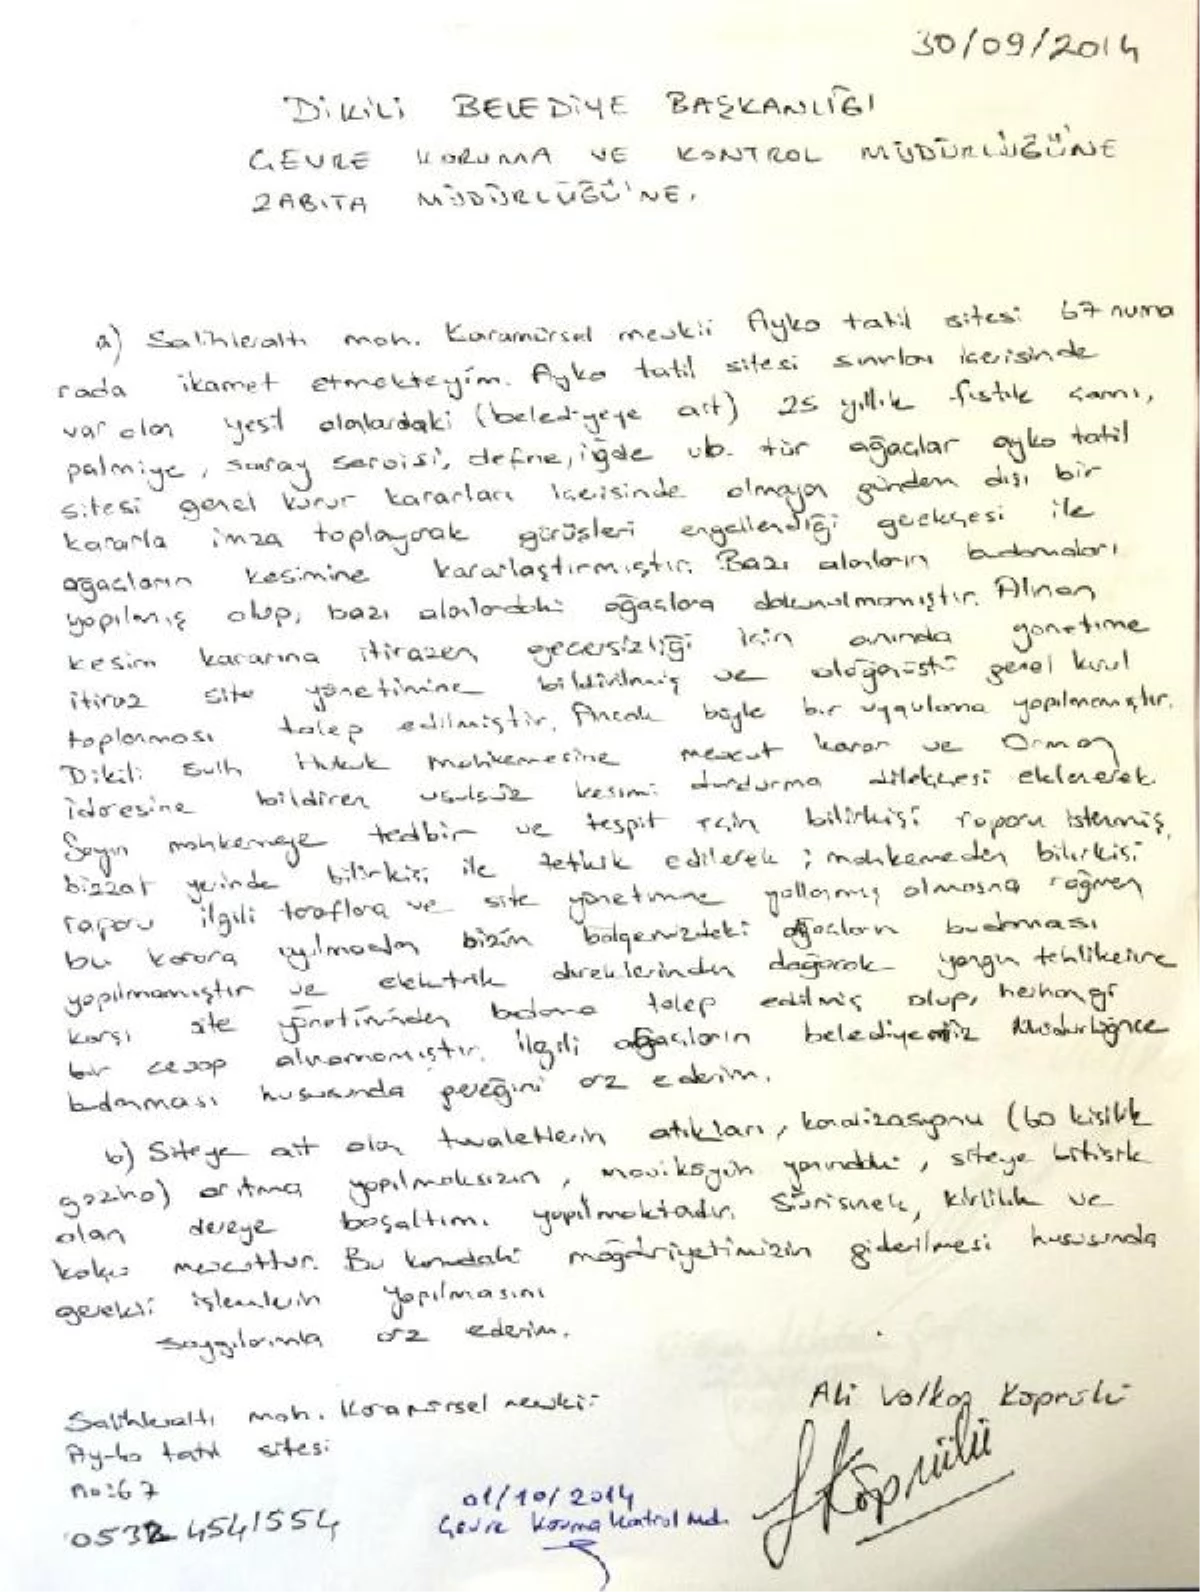 30/09/2014
DİKİLİ BELEDİYE BAŞKANLIĞI
ÇEVRE KORUMA VE KONTROL MÜDÜRLÜĞÜNE
ZABITA MÜDÜRLÜĞÜ'NE,
a) Salihleraltı mah. Karamürsel mevkii Ayko tatil sitesi 67 numa
rada ikamet etmekteyim. Ayko tatil sitesi sınırları içerisinde
var olan yeşil alanlardaki (belediyeye ait) 25 yıllık fıstık çamı,
palmiye, saray servisi, defne, iğde vb. tür ağaçlar ayko tatil
sitesi genel kurur kararları içerisinde olmayan gündem dışı bir
kararla imza toplayarak görüşleri engellendiği gerekçesi ile
ağaçların kesimine kararlaştırmıştır. Bazı alanların budamaları
yapılmış olup, bazı alanlardaki ağaçlara dokunulmamıştır. Alınan
kesim kararına itirazen geçersizliği için anında yönetime
itiraz site yönetimine bildirilmiş ve olağanüstü genel kurul
toplanması talep edilmiştir. Ancak böyle bir uygulama yapılmamıştır.
Dikili Sulh Hukuk Mahkemesine mevcut karar ve Orman
idaresine bildiren usulsüz kesimi durdurma dilekçesi eklenerek
Sayın mahkemeye tedbir ve tespit için bilirkişi raporu istenmiş,
bizzat yerinde bilirkişi ile tetkik edilerek ; mahkemeden bilirkişi
raporu ilgili taraflara ve site yönetimine yollanmış olmasına rağmen
bu karara uyulmadan bizim bölgemizdeki ağaçların budaması
yapılmamıştır ve elektrik direklerinden doğacak yangın tehlikesine
karşı site yönetiminden budama talep edilmiş olup, herhangi
bir cevap alınamamıştır. İlgili ağaçların belediyemiz Müdürlüğünce
budanması hususunda gereğini arz ederim.
b) Siteye ait olan tuvaletlerin atıkları, kanalizasyonu (60 kişilik
gazino) arıtma yapılmaksızın, maviköyün yanındaki, siteye bitişik
olan dereye boşaltımı yapılmaktadır. Sivrisinek, kirlilik ve
koku mevcuttur. Bu konudaki mağduriyetimizin giderilmesi hususunda
gerekli işlemlerin yapılmasını
saygılarımla arz ederim.
Ali Volkan Köprülü
Salihleraltı mah. Karamürsel mevkii
Ay-ko tatil sitesi
no:67
0532 4541554
Köprülü
01/10/2014
Çevre Koruma Kontrol Md.